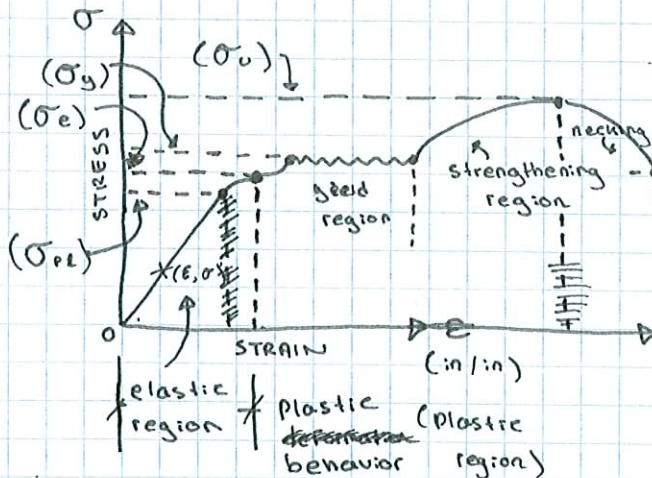 σ
(σy)
(σu)
(σe)
STRESS
(σPL)
(ε, σ)
yield
region
strengthening
region
necking
O
STRAIN
ε
(in/in)
elastic
region
plastic
behavior
(plastic
region)